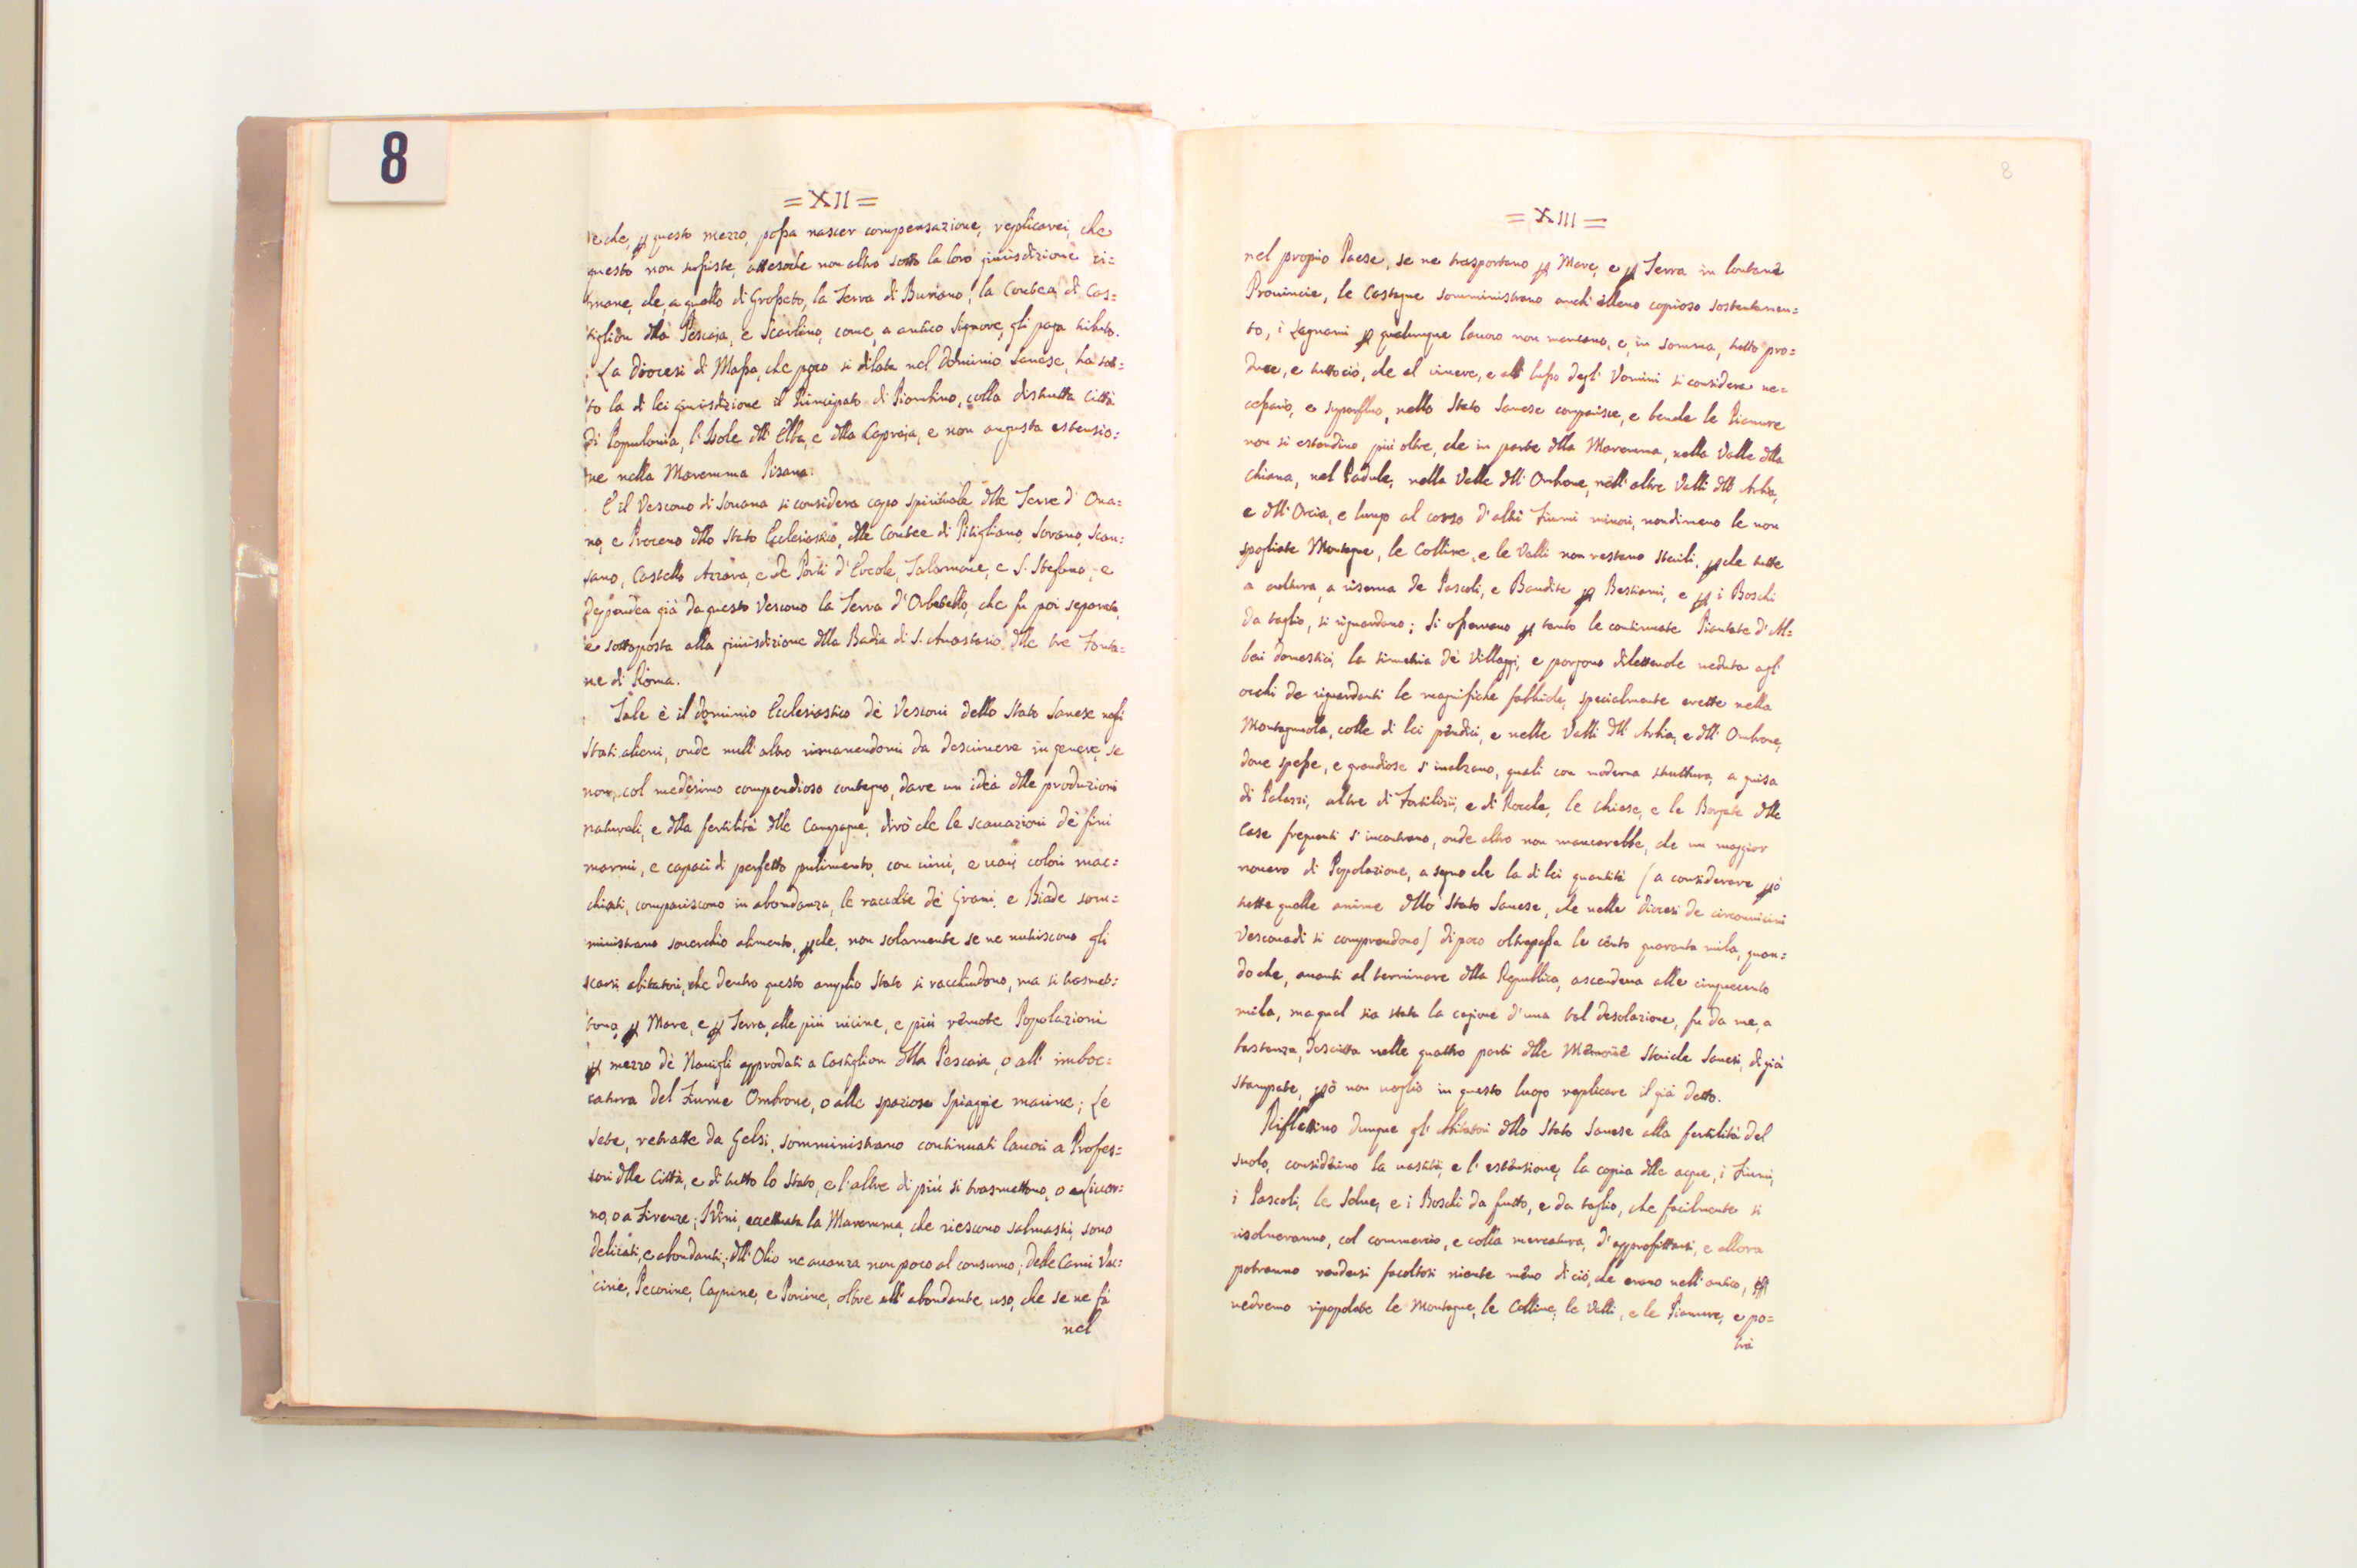 8
= XII =
e che, ꝑ questo mezzo, possa nascer compensazione, replicarei, che
questo non sussiste, attesoche non altro sotto la loro giurisdizione ri=
mane, che, a quello di Grosseto, la Terra di Buriano, la Contea di Cas=
tiglion dlla Pescaja, e Scarlino, come, a antico Signore, gli paga tributo.
La Diocesi di Massa, che poco si dilata nel dominio Sanese, ha sot=
to la di lei giurisdizione il Principato di Piombino, colla distrutta Città
di Populonia, l'Isole dll'Elba, e dlla Capraja, e non angusta estensio=
ne nella Maremma Pisana.
E il Vescovo di Sovana si considera capo spirituale dlle Terre d'Ona=
no, e Proceno dllo Stato Ecclesiastico, dlle Contee di Pitigliano, Sorano, Scan=
sano, Castello Azzara, e de Porti d'Ercole, Talamone, e S. Stefano, e
dependea già da questo Vescovo la Terra d'Orbetello, che fu poi separata,
e sottoposta alla giurisdizione dlla Badia di S. Anastasio dlle tre Fonta=
ne di Roma.
Tale è il dominio Ecclesiastico dè Vescovi dello Stato Sanese negli
Stati alieni, onde null'altro rimanendomi da descrivere in genere, se
non, col medesimo compendioso contegno, dare un idea dlle produzioni
naturali, e dlla fertilità dlle Campagne, dirò che le scavazioni dè fini
marmi, e capaci di perfetto pulimento, con vivi, e varj colori mac=
chiati, compariscono in abondanza, le raccolte dè Grani, e Biade som=
ministrano soverchio alimento, ꝑche, non solamente se ne nutriscono gli
scarsi abitatori, che dentro questo amplio Stato si racchiudono, ma si trasmet=
tono, ꝑ Mare, e ꝑ Terra, alle più vicine, e più remote Popolazioni
ꝑ mezzo dè Navigli approdati a Castiglion dlla Pescaia, o all'imboc=
catura del Fiume Ombrone, o alle spaziose Spiaggie marine; Le
Sete, retratte da Gelsi, somministrano continuati lavori a Profes=
sori dlle Città, e di tutto lo Stato, e l'altre di più si trasmettono, o a Livor=
no, o a Firenze; I Vini, eccettuata la Maremma, che riescono salmastri, sono
delicati, e abondanti; dll'Olio ne avanza non poco al consumo; delle Carni Vac=
cine, Pecorine, Caprine, e Porcine, oltre all'abondante uso, che se ne fà
nel
8
= XIII =
nel proprio Paese, se ne trasportano ꝑ Mare, e ꝑ Terra in lontane
Provincie, le Castagne somministrano anch'elleno copioso sostentamen=
to, i Legnami ꝑ qualunque lavoro non mancano, e, in somma, tutto pro=
duce, e tutto ciò, che al vivere, e all lusso degl'Uomini si considera ne=
cessario, e superfluo, nello Stato Sanese comparisce, e benche le Pianure
non si estendino più oltre, che in parte dlla Maremma, nella Valle dlla
Chiana, nel Padule, nella Valle dll'Ombrone, nell'altre Valli dll'Arbia,
e dll'Orcia, e lungo al corso d'altri Fiumi minori, nondimeno le non
spogliate Montagne, le Colline, e le Valli non restano sterili, ꝑche tutte
a cultura, a riserva de Pascoli, e Bandite ꝑ Bestiami, e ꝑ i Boschi
da taglio, si riguardano; Si osservano ꝑ tanto le continuate Piantate d'Al=
beri domestici, la simetria dè Villaggi, e porgono dilettevole veduta agli
occhi de riguardanti le magnifiche fabbriche, specialmente erette nella
Montagnuola, colle di lei pendici, e nelle Valli dll'Arbia, e dll'Ombrone,
dove spesse, e grandiose s'inalzano, quali con moderna struttura, a guisa
di Palazzi, altre di Fortilizii, e di Rocche, le Chiese, e le Borgate dlle
Case frequenti s'incontrano, onde altro non mancarebbe, che un maggior
novero di Popolazione, a segno che la di lei quantità (a considerare ꝑò
tutte quelle anime dllo Stato Sanese, che nelle Diocesi de circonvicini
Vescovadi si comprendono) di poco oltrepassa le cento quaranta mila, quan=
do che, avanti al terminare dlla Republica, ascendeva alle cinquecento
mila, ma qual sia stata la cagione d'una tal desolazione, fu da me, a
bastanza, descritta nelle quattro parti dlle Memorie Storiche Sanesi, di già
stampate, ꝑò non voglio in questo luogo replicare il già detto.
Riflettino dunque gl'Abitatori dllo Stato Sanese alla fertilità del
suolo, considerino la vastità, e l'estensione, la copia dlle acque, i Fiumi,
i Pascoli, le Selve, e i Boschi da frutto, e da taglio, che facilmente si
risolveranno, col commercio, e colla mercatura, d'approfittarsi, e allora
potranno rendersi facoltosi niente meno di ciò, che erano nell'antico, e
vedremo ripopolate le Montagne, le Colline, le Valli, e le Pianure, e po=
trà